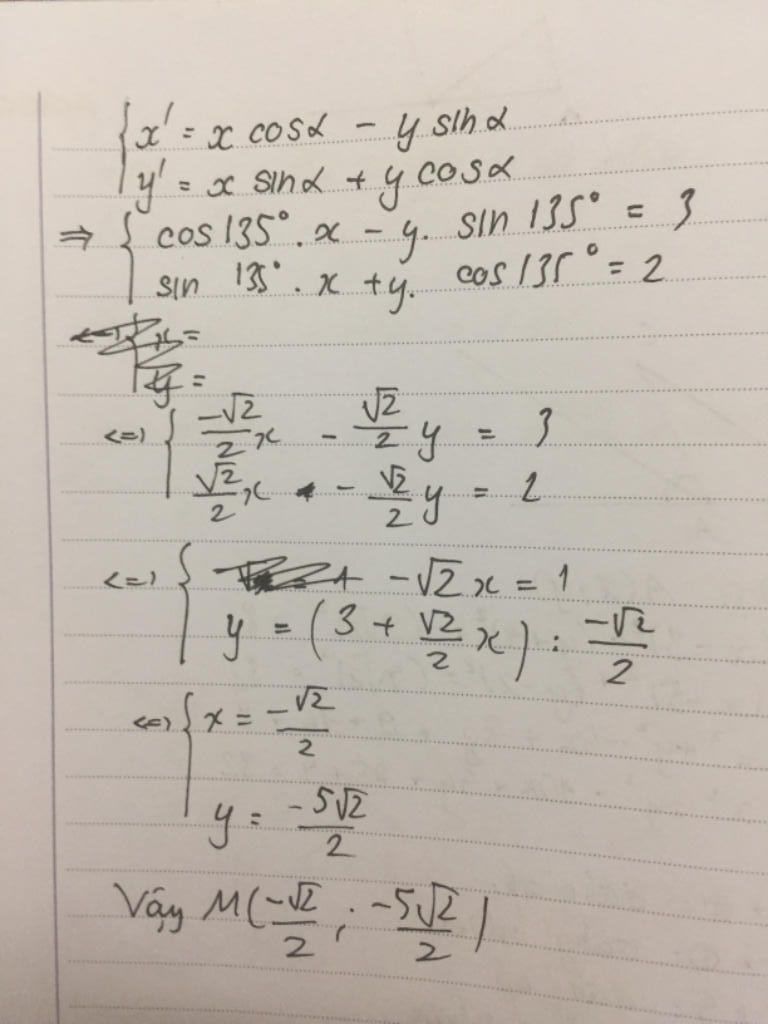 { x' = x cosα - y sinα
y' = x sinα + y cosα
⇒ { cos 135°. x - y. sin 135° = 3
sin 135°. x + y. cos 135° = 2
x =
y =
<=> { -√2/2 x - √2/2 y = 3
√2/2 x - √2/2 y = 2
<=> { -√2 x = 1
y = (3 + √2/2 x) : -√2/2
<=> { x = -√2/2
y = -5√2/2
Vậy M(-√2/2 ; -5√2/2)